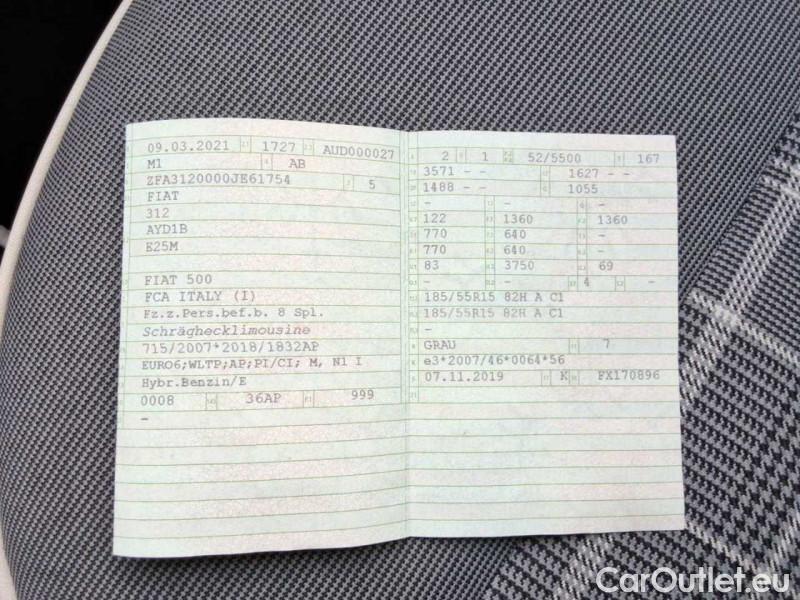 09.03.2021 1727 AUD000027
M1 AB
ZFA3120000JE61754 5
FIAT
312
AYD1B
E25M
FIAT 500
FCA ITALY (I)
Fz.z.Pers.bef.b. 8 Spl.
Schräghecklimousine
715/2007*2018/1832AP
EURO6;WLTP;AP;PI/CI; M, N1 I
Hybr.Benzin/E
0008 36AP 999
–
2 1 52/5500 167
3571 - - 1627 - -
1488 - - 1055
- - -
122 1360 1360
770 640 -
770 640 -
83 3750 69
- - 4 -
185/55R15 82H A C1
185/55R15 82H A C1
-
GRAU 7
e3*2007/46*0064*56
07.11.2019 K FX170896
CarOutlet.eu